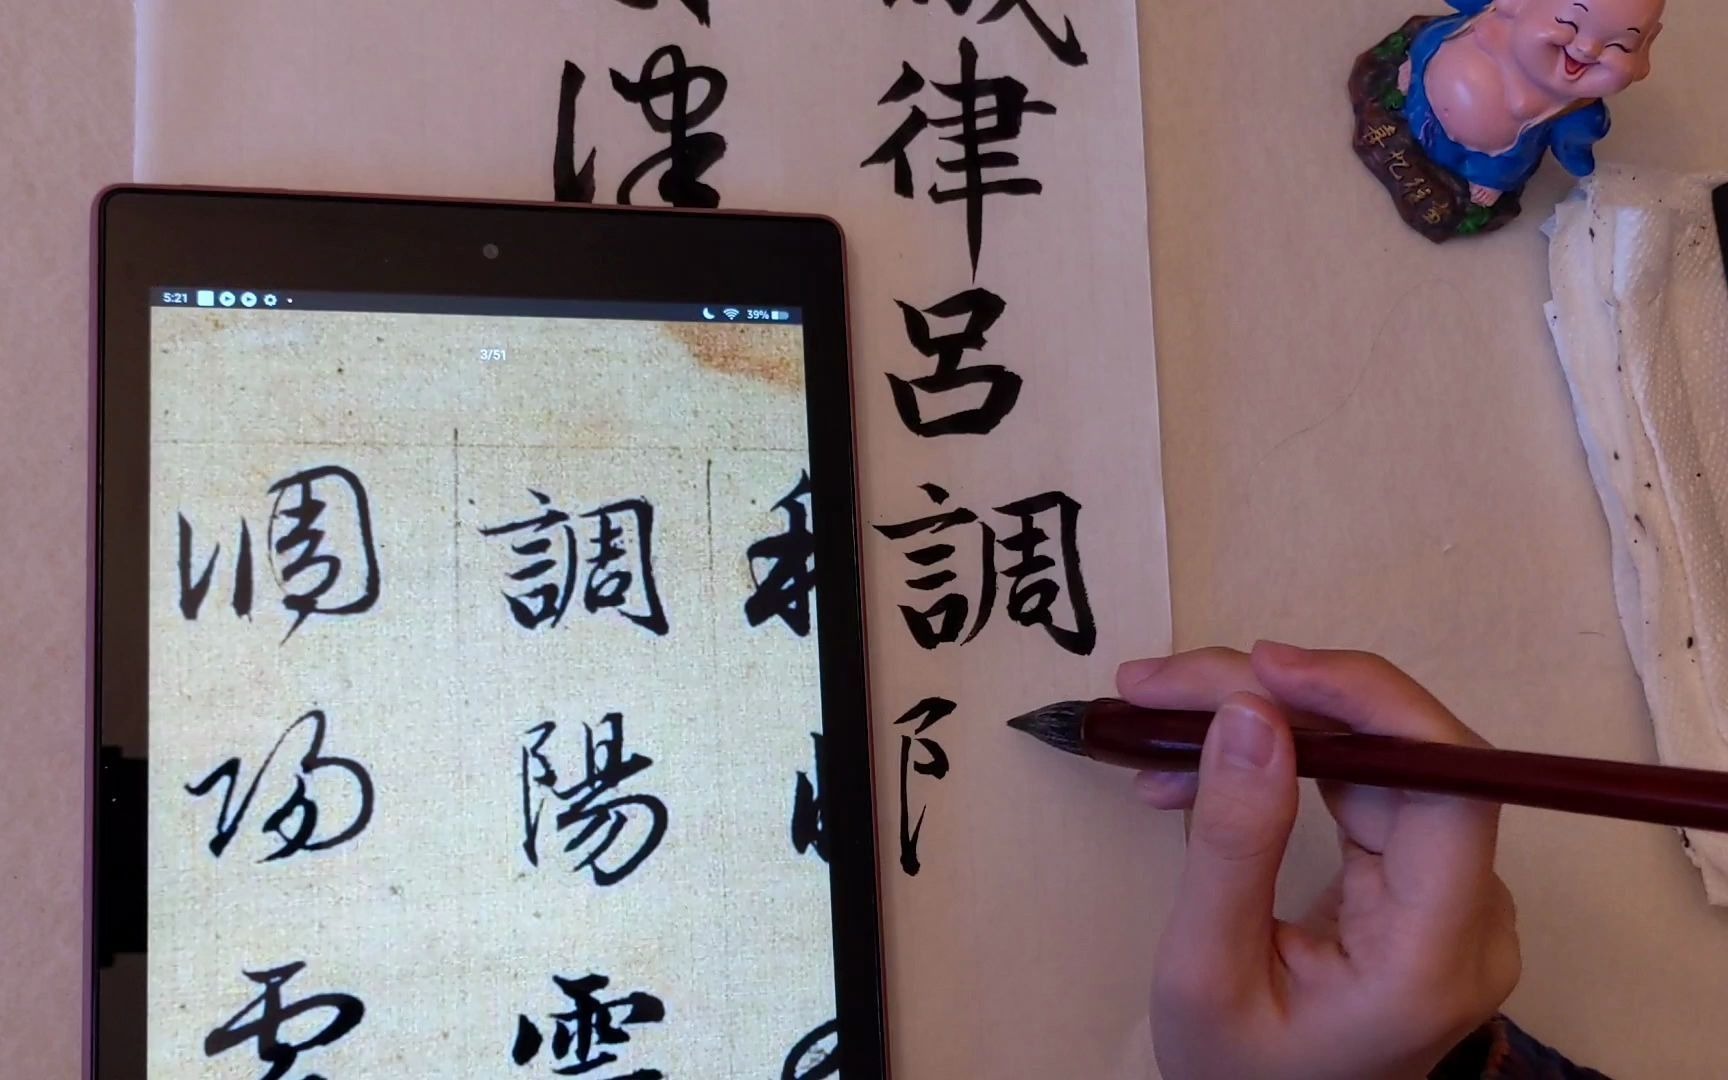 律呂調阝
律
5:21 39%
3/51
調陽雲
調陽雲